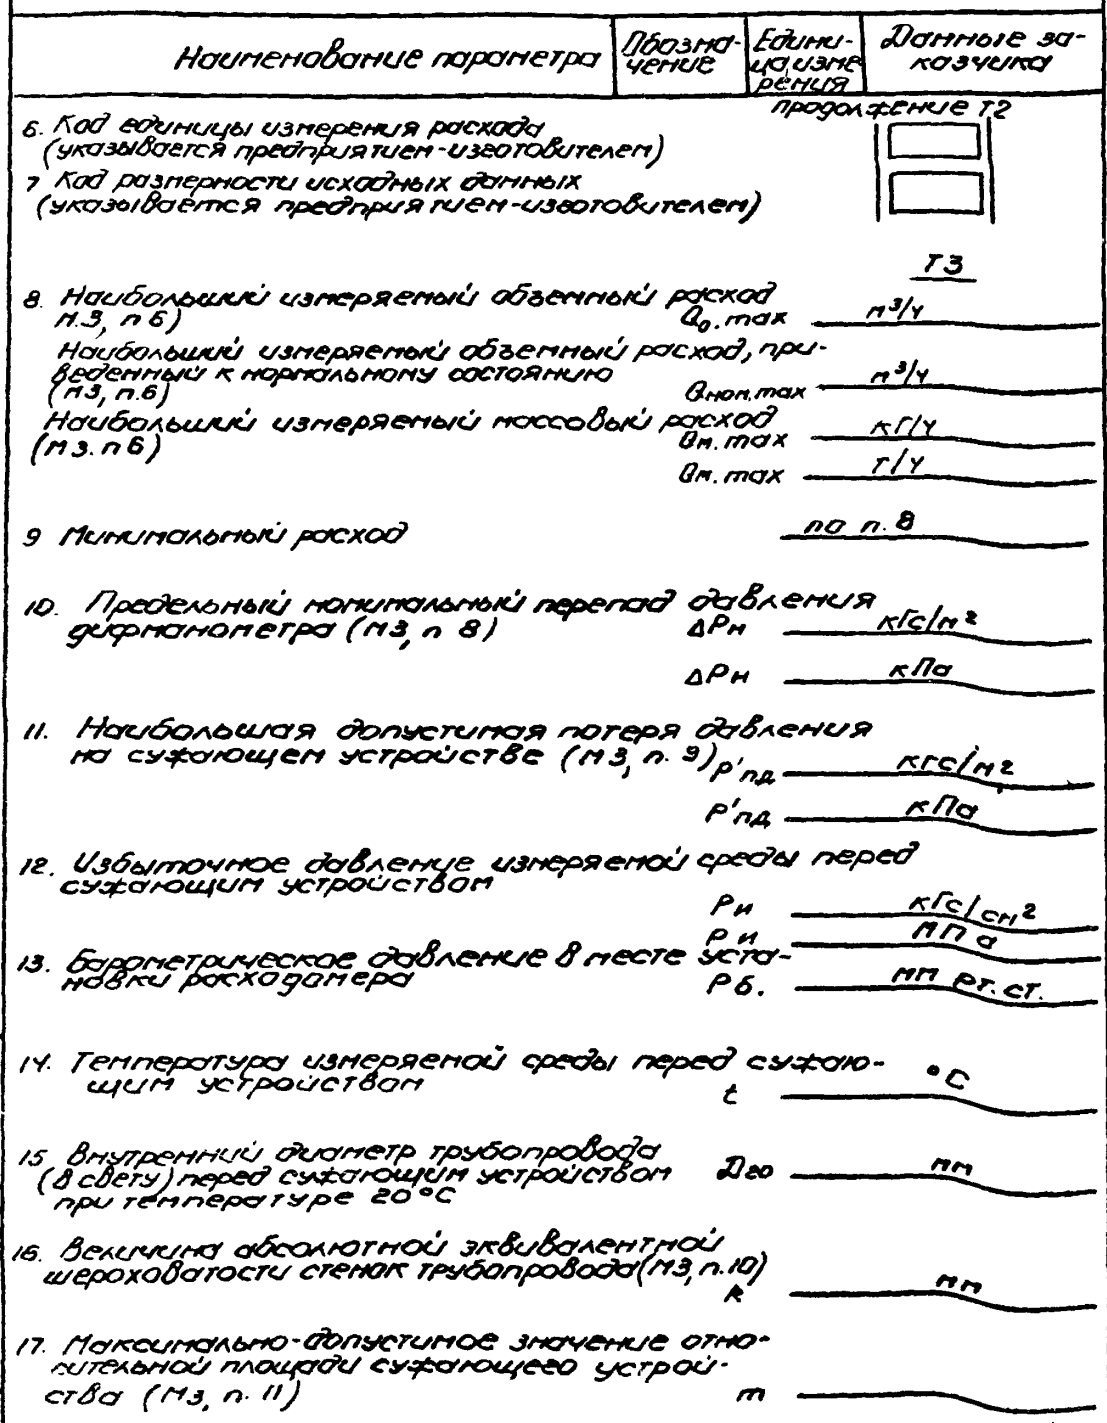 Наименование параметра
Обозна-
чение
Едини-
ца изме
рения
Данные за-
казчика
продолжение Т2
6. Код единицы измерения расхода
(указывается предприятием-изготовителем)
7 Код размерности исходных данных
(указывается предприятием-изготовителем)
Т3
8. Наибольший измеряемый объемный расход
М.3, п 6)
Qо.max м³/ч
Наибольший измеряемый объемный расход, при-
веденный к нормальному состоянию
(М3, п.6)
Qном.max м³/ч
Наибольший измеряемый массовый расход
(М3. п 6)
Qм.max кг/ч
Qм.max т/ч
9 Минимальный расход по п. 8
10. Предельный номинальный перепад давления
дифманометра (М3, п 8)
ΔРн кгс/м²
ΔРн кПа
11. Наибольшая допустимая потеря давления
на сужающем устройстве (М3, п. 9)
Р'пд кгс/м²
Р'пд кПа
12. Избыточное давление измеряемой среды перед
сужающим устройством
Ри кгс/см²
Ри МПа
13. Барометрическое давление в месте уста-
новки расходомера
Рб. мм рт. ст.
14. Температура измеряемой среды перед сужаю-
щим устройством
t °С
15 Внутренний диаметр трубопровода
(в свету) перед сужающим устройством
при температуре 20°С
Д20 мм
16. Величина абсолютной эквивалентной
шероховатости стенок трубопровода (М3, п.10)
k мм
17. Максимально-допустимое значение отно-
сительной площади сужающего устрой-
ства (М3, п. 11)
m